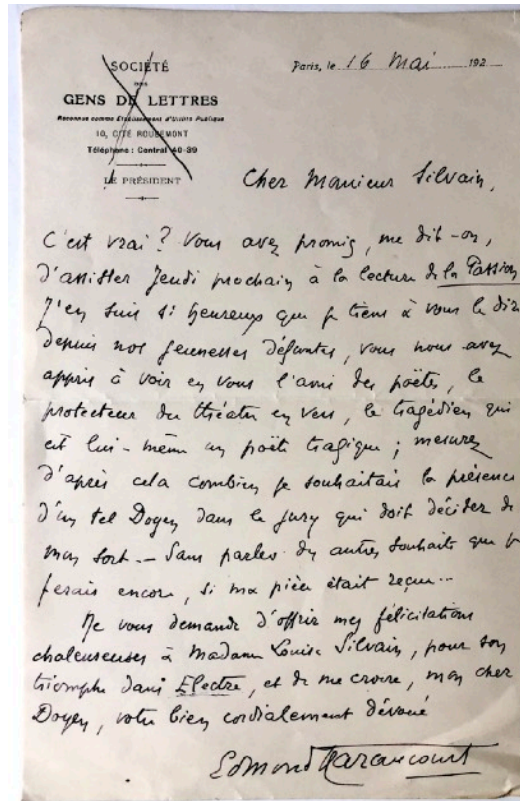 SOCIÉTÉ
DES
GENS DE LETTRES
Reconnue comme Établissement d'Utilité Publique
10, CITÉ ROUGEMONT
Téléphone : Central 40-39
LE PRÉSIDENT
Paris, le 16 Mai 192
Cher Monsieur Silvain,
C'est vrai ? Vous avez promis, me dit-on,
d'assister Jeudi prochain à la lecture de la Passion
J'en suis si heureux que je tiens à vous le dire
depuis nos jeunesses défuntes, vous nous avez
appris à voir en vous l'ami des poëtes, le
protecteur du théatre en vers, le tragédien qui
est lui-même un poëte tragique ; mesurez
d'après cela combien je souhaitais la présence
d'un tel Doyen dans le jury qui doit décider de
mon sort. — Sans parler des autres souhaits que
ferais encore, si ma pièce était reçue...
Je vous demande d'offrir mes félicitations
chaleureuses à Madame Louise Silvain, pour son
triomphe dans Electre, et de me croire, mon cher
Doyen, votre bien cordialement dévoué
Edmond Haraucourt